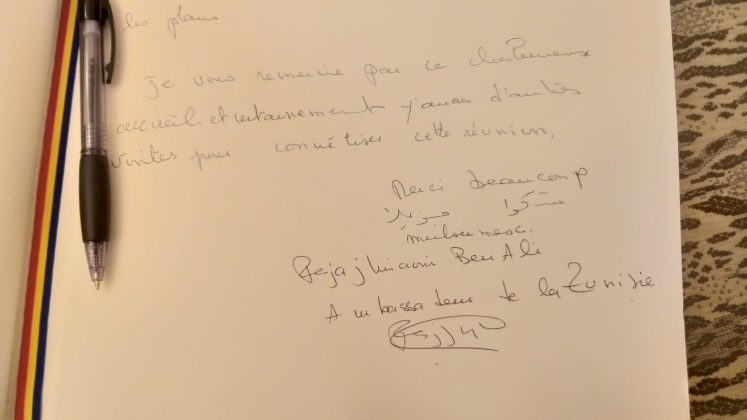 les plans
Je vous remercie par ce chaleureux
accueil. et certainement y'aura d'autres
visites pour concrétiser cette réunion.
Merci beaucoup
شكرا جزيلا
Ben Ali
Ambassadeur de la Tunisie